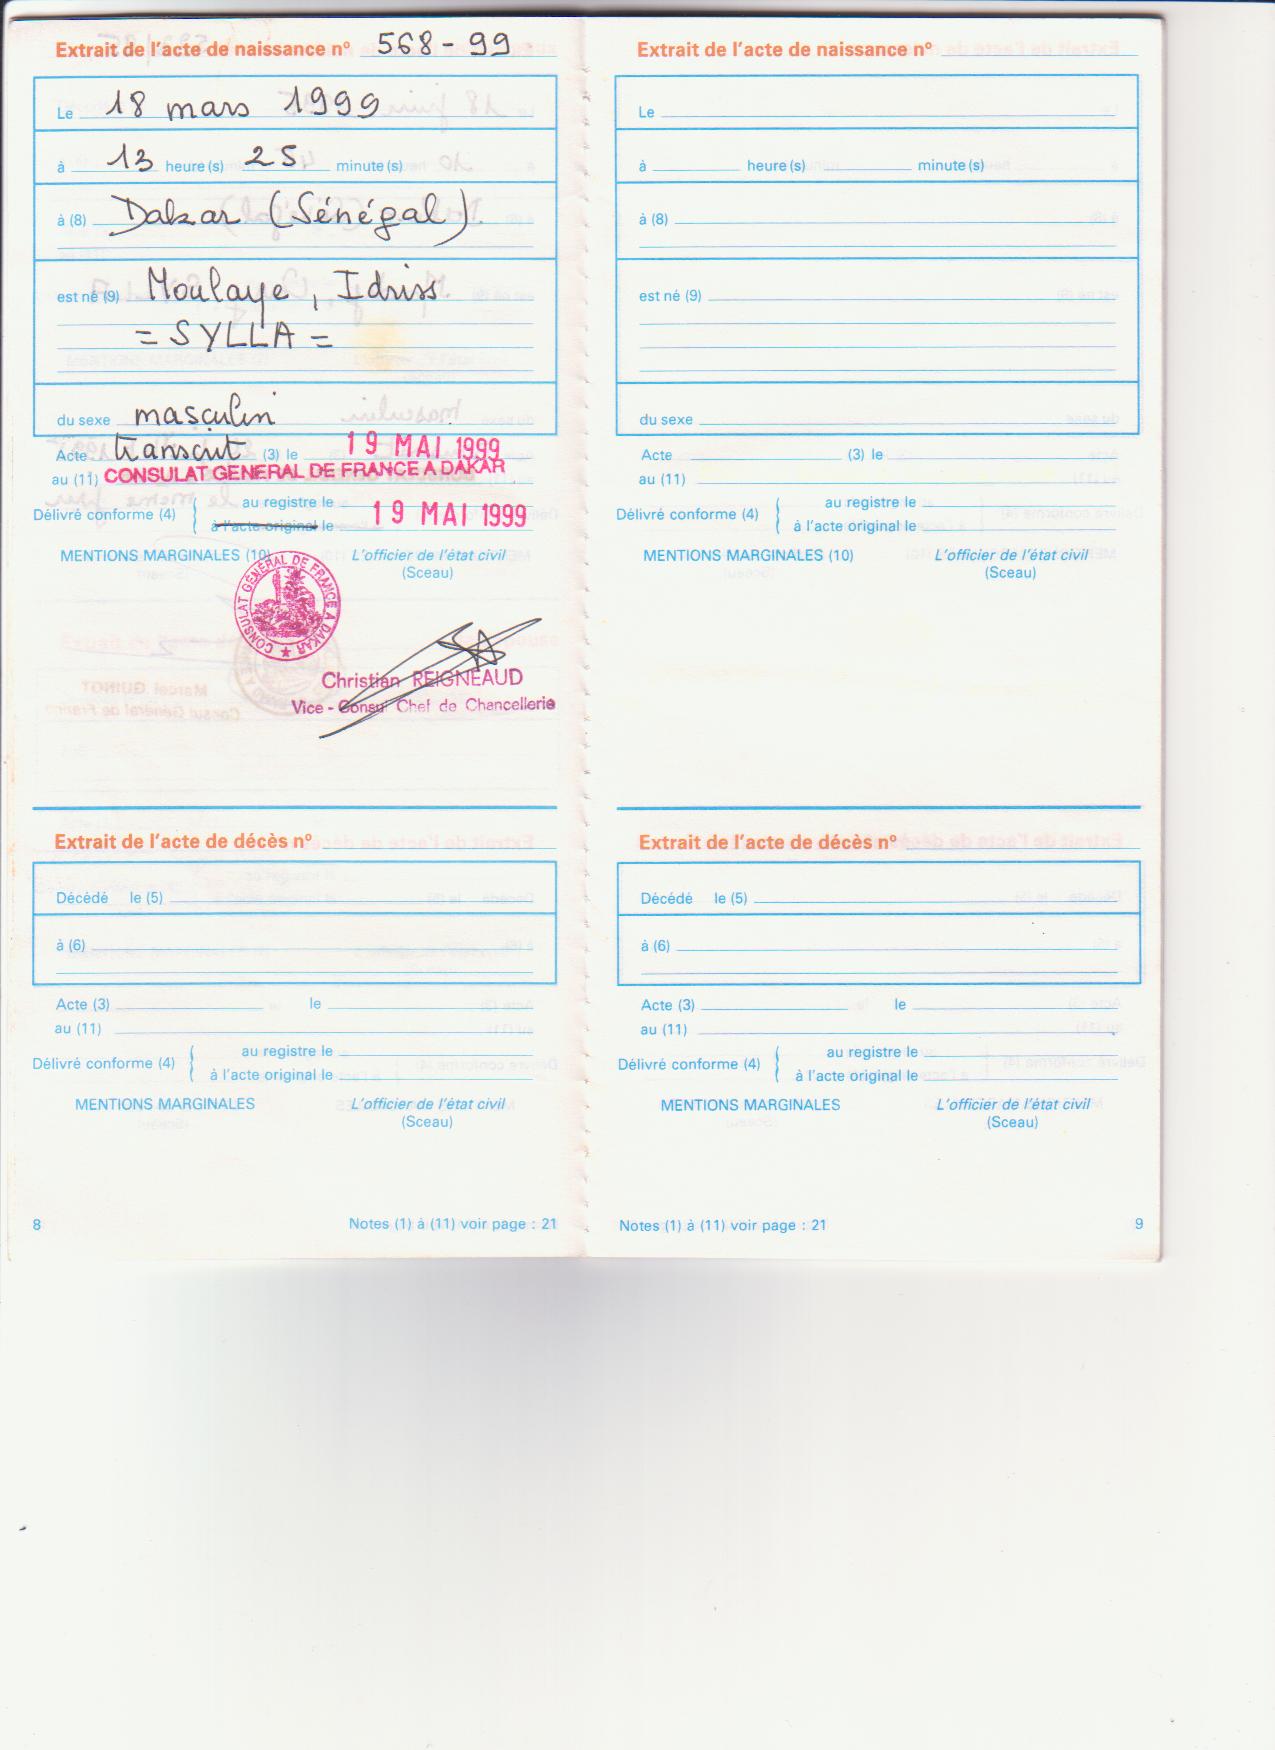 Extrait de l'acte de naissance nº 568-99
Le 18 mars 1999
à 13 heure(s) 25 minute(s)
à (8) Dakar (Sénégal).
est né (9) Moulaye, Idriss.
= SYLLA =
du sexe masculin
Acte transcrit (3) le 19 MAI 1999
au (11) CONSULAT GENERAL DE FRANCE A DAKAR
Délivré conforme (4) { au registre le
à l'acte original le 19 MAI 1999
MENTIONS MARGINALES (10) L'officier de l'état civil
(Sceau)
CONSULAT GÉNÉRAL DE FRANCE A DAKAR ★
Christian REIGNEAUD
Vice-Consul Chef de Chancellerie
Extrait de l'acte de décès nº
Décédé le (5)
à (6)
Acte (3) le
au (11)
Délivré conforme (4) { au registre le
à l'acte original le
MENTIONS MARGINALES L'officier de l'état civil
(Sceau)
8 Notes (1) à (11) voir page : 21
Extrait de l'acte de naissance nº
Le
à heure(s) minute(s)
à (8)
est né (9)
du sexe
Acte (3) le
au (11)
Délivré conforme (4) { au registre le
à l'acte original le
MENTIONS MARGINALES (10) L'officier de l'état civil
(Sceau)
Extrait de l'acte de décès nº
Décédé le (5)
à (6)
Acte (3) le
au (11)
Délivré conforme (4) { au registre le
à l'acte original le
MENTIONS MARGINALES L'officier de l'état civil
(Sceau)
Notes (1) à (11) voir page : 21 9